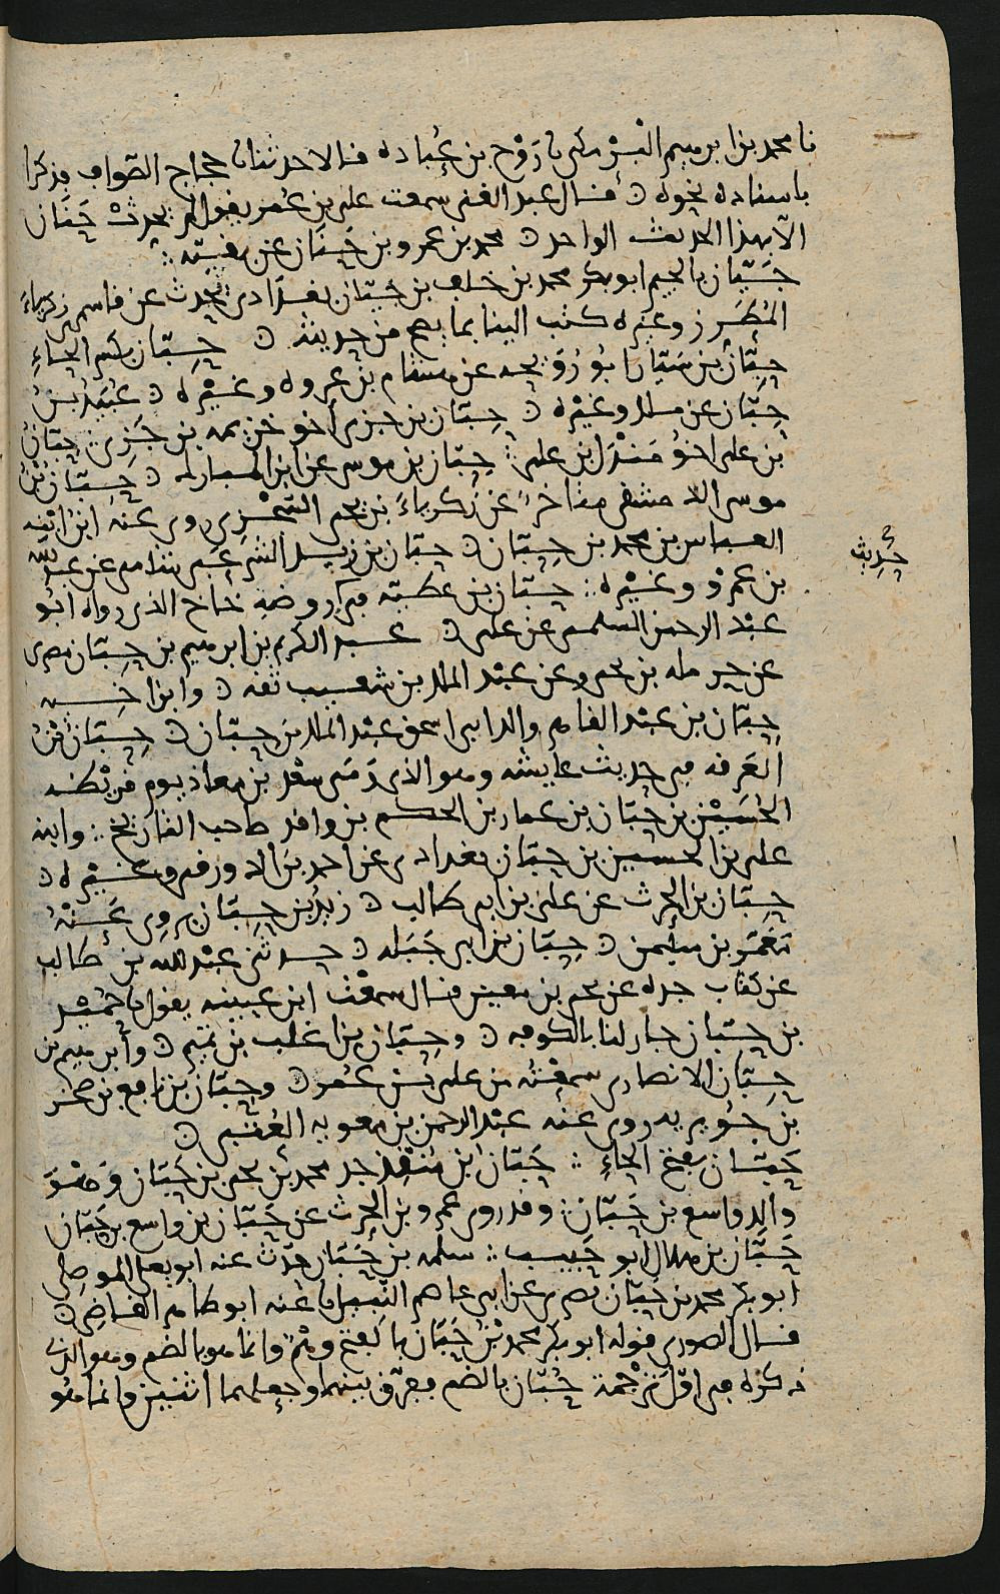 نا محمد بن ابرهيم البسر ملى نا رَوْح بن عُبادة فالا حدثنا حجاج الصواف فذكرا
باسناده نحوه قال عبد الغنى سمعت على بن عمر يقول لم يحدث حَنَان
الا بهذا الحديث الواحد محمد بن عمرو بن حَنَان عن بقيّه
جَيّان بالجيم ابو بكر محمد بن خلف بن جَيّان بغدادى يحدث عن قاسم بن زكرياءَ
المُطَرِّز وغيره كتب الينا بما يصح من حديثه حِبّان بكسر الحاءِ
حِبّان بن سَيّار ابو رَوْحه عن هشام بن عروه وغيره عُبَيد بن
حِبّان عن ملك وغيره حِبّان بن جزى اخو خزيمه بن جَزِى حِبّان
بن على اخو مَنْدَل بن على حِبّان بن موسى عن ابن المبارك حِبّان بن
موسى الدمشقى متاخر عن زكرياءَ بن يحيى السّجْزِى روى عنه ابن ابنه
العباس بن محمد بن حِبّان حِبّان بن زيد الشرعبى شامى عن عبد الله
حَدِيث
بن عمرو وغيره حِبّان بن عطيّه فى روضه خاخ الذى رواه ابو
عبد الرحمن السلمى عن على عبد الكريم بن ابرهيم بن حِبّان مصرى
عن حرمله بن يحيى وعن عبد الملك بن شعيب ثقه وابن اخيه
حِبّان بن عبد القاهر والد ابى اسحق عبد الملك بن حِبّان حِبّان بن
العَرِقه فى حديث عايشه وهو الذى رَمَى سعد بن معاذ يوم قريظه
الحُسَيْن بن حِبّان بن عمار بن الحكم بن واقد صاحب التاريخ وابنه
على بن الحسين بن حِبّان بغدادى عن احمد بن الدورقى وغيره
حِبّان بن الحرث عن على بن ابى طالب زيد بن حِبّان يروى عَنْهُ
مَعْمَر بن سليمن حِبّان بن ابى جَبَله حدثنى عبد الله بن طالب
عن كتاب جده عن يحيى بن معين قال سمعت ابن عيينه يقول نا حميد
بن حبّان جار لنا بالكوفه وحِبّان بن اغلب بن تميم وابرهيم بن
حِبّان الانصارى سمعته من على بن عُمر وحِبّان بن نافع بن صخر
بن جُويريه روى عنه عبد الرحمن بن معويه العُتبى
حَبّان بفتح الحاءِ حَبّان بن مُنْقِذ جد محمد بن يحيى بن حَبّان وَهُوَ
والد واسع بن حَبّان وقد روى عمرو بن الحرث عن حَبّان بن واسع بن حَبّان
حَبّان بن هلال ابو حَبيب سلمه بن حَبّان حدّث عنه ابو يعلى الموصلى
ابو بكر محمد بن حَبّان بصرى عن ابى عاصم النبيل نا عنه ابو طاهر القاضى
قال الصورى قوله ابو بكر محمد بن حَبّان بالفتح وهْمٌ وانما هو بالضم وهو الذى
ذكره فى اوّل ترجمة حُبّان بالضم ففرّق بينهما وجعلهما اثنين وانما هُو